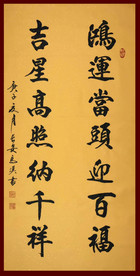 鴻運當頭迎百福
吉星高照納千祥
庚子夏月